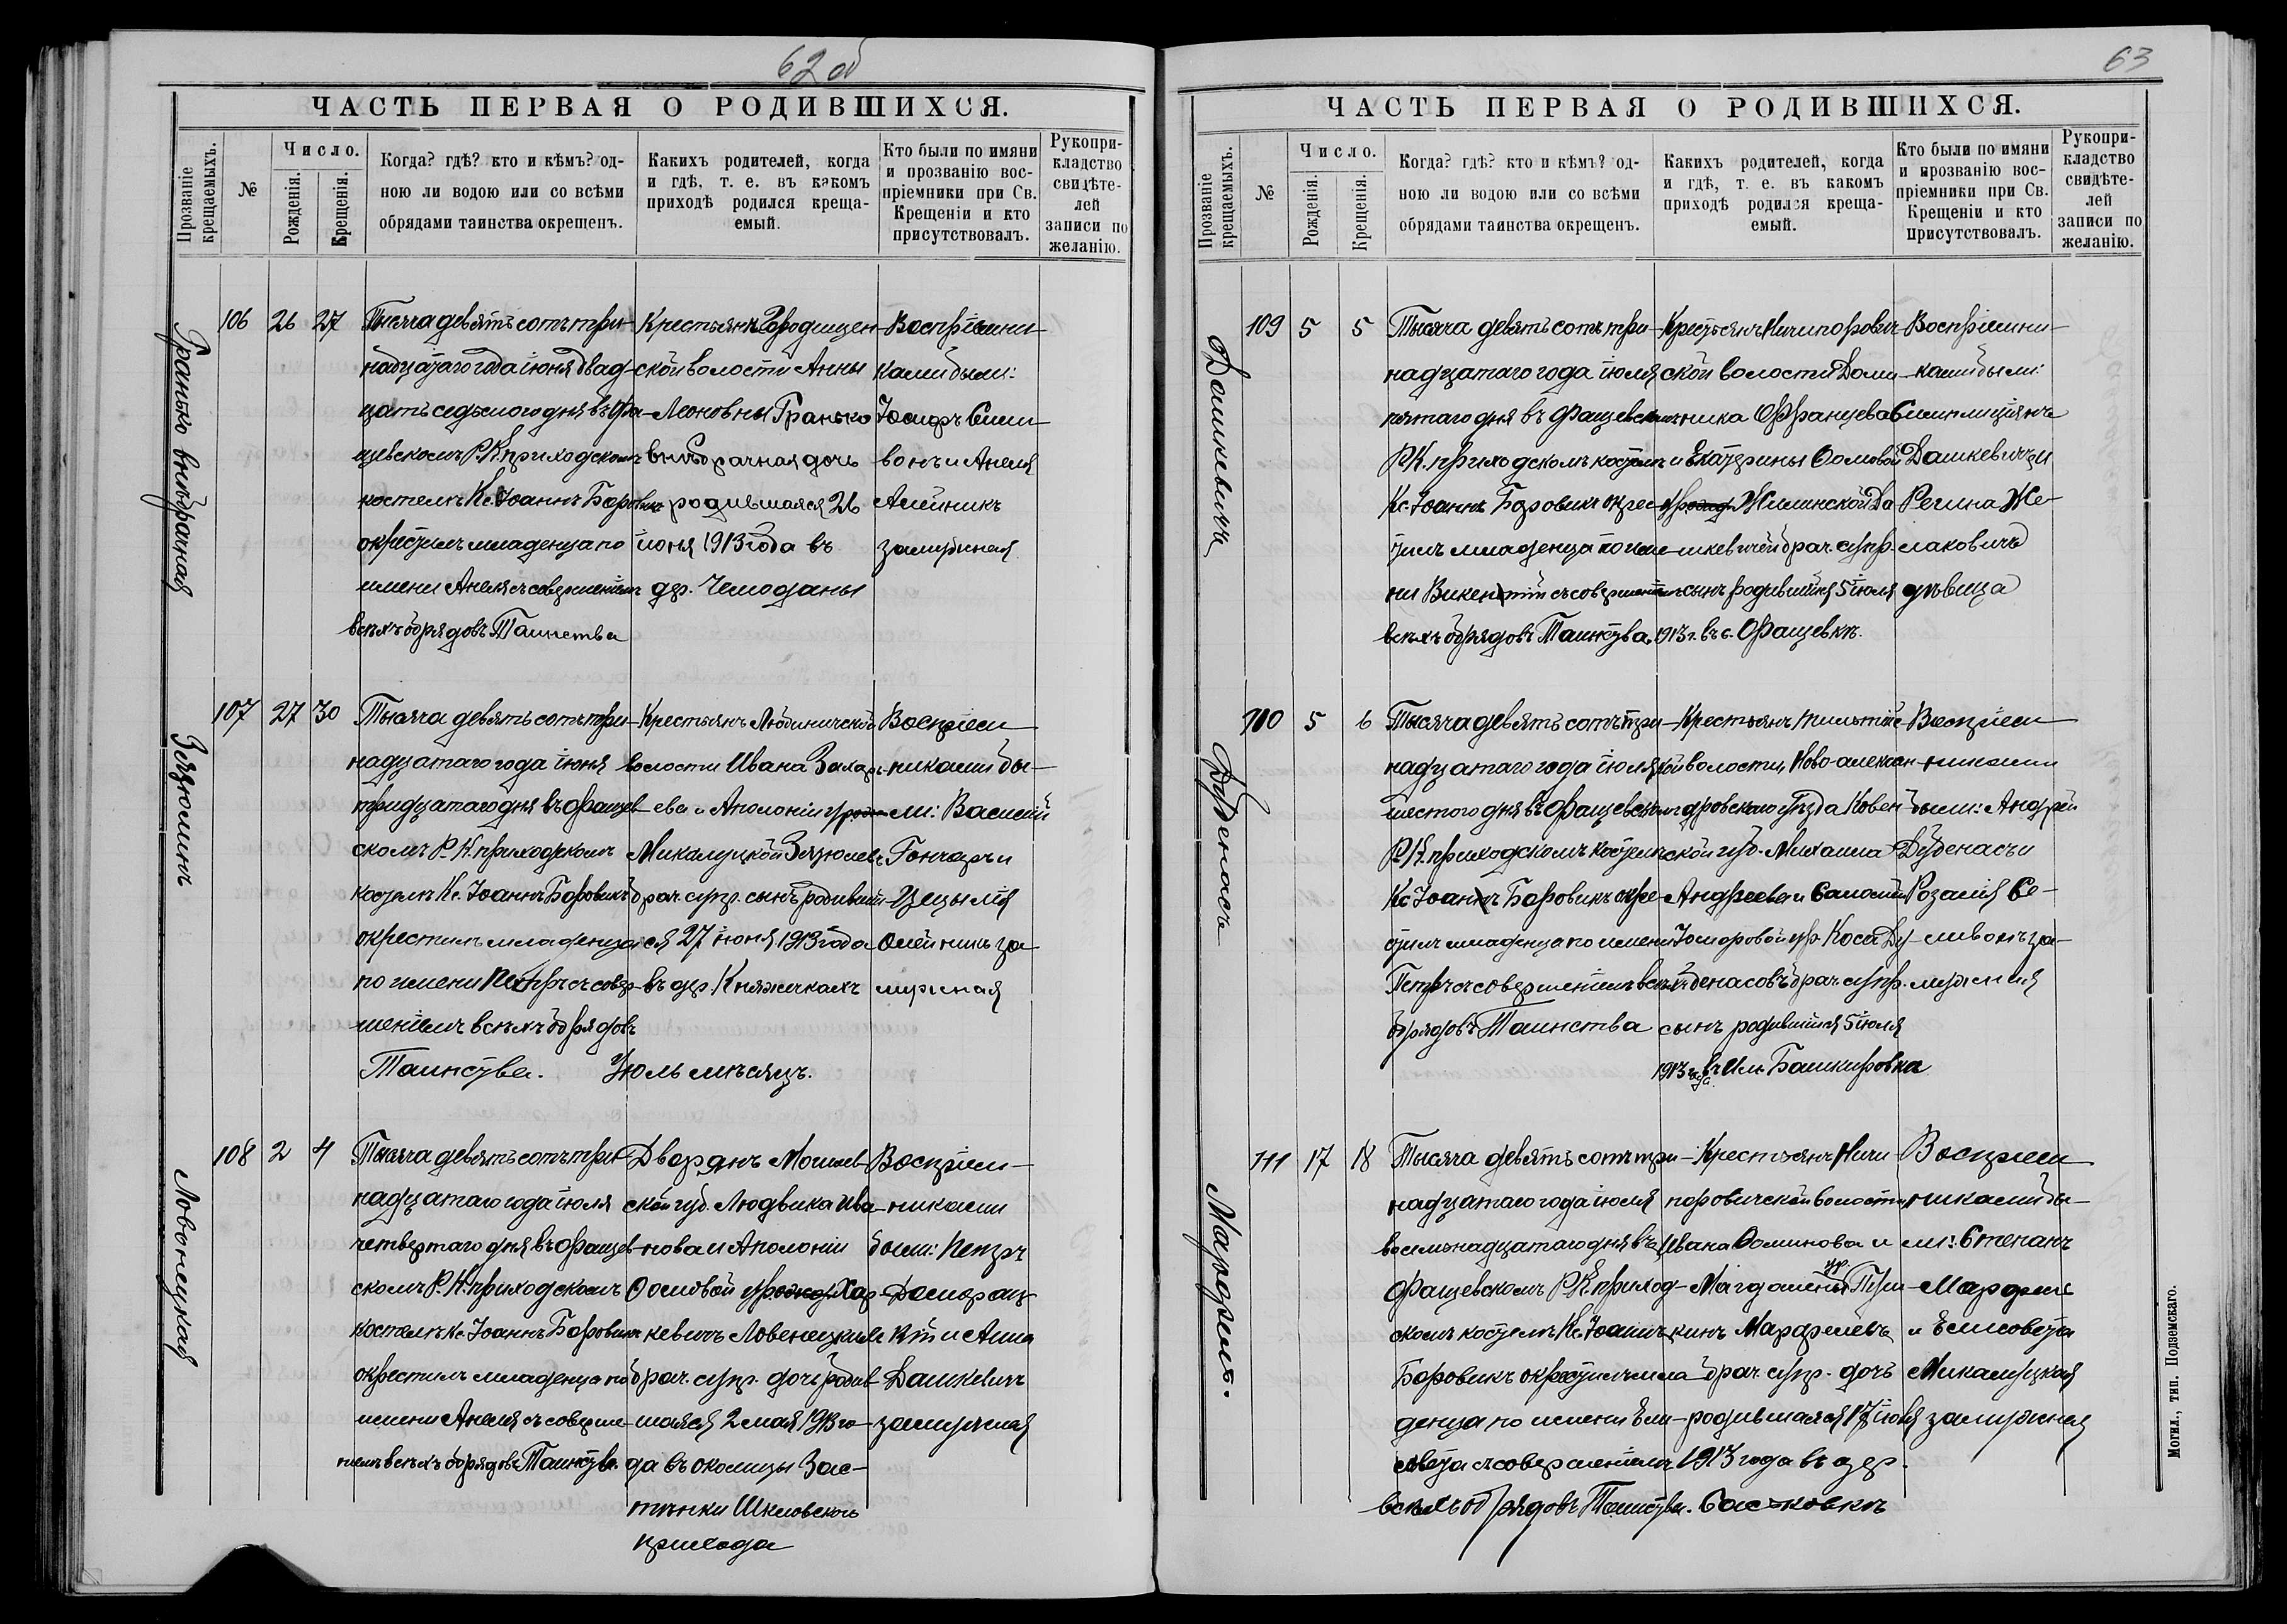 62 об
ЧАСТЬ ПЕРВАЯ О РОДИВШИХСЯ.
Прозваніе крещаемыхъ.
№
Число.
Рожденія.
Крещенія.
Когда? гдѣ? кто и кѣмъ? од-
ною ли водою или со всѣми
обрядами таинства окрещенъ.
Какихъ родителей, когда
и гдѣ, т. е. въ какомъ
приходѣ родился креща-
емый.
Кто были по имяни
и прозванію вос-
пріемники при Св.
Крещеніи и кто
присутствовалъ.
Рукопри-
кладство
свидѣте-
лей
записи по
желанію.
Гранько внѣбрачная
106
26
27
Тысяча девятьсотъ три-
надцатаго года іюня двад-
цать седьмого дня въ Фа-
щевскомъ Р. К. приходскомъ
костелѣ Кс. Іоаннъ Боровикъ
окрестилъ младенца по
имени Анеля съ совершеніемъ
всѣхъ обрядовъ Таинства
Крестьянъ Городищен-
ской волости Анны
Леоновны Гранько
внѣбрачная дочь
родившаяся 26
іюня 1913 года въ
дер. Чемоданы
Воспріемни-
ками были:
Іосифъ Сили-
вонъ и Анеля
Алейникъ
замужняя
Зезюлинъ
107
27
30
Тысяча девятьсотъ три-
надцатаго года іюня
тридцатаго дня въ Фащев-
скомъ Р. К. приходскомъ
костелѣ Кс. Іоаннъ Боровикъ
окрестилъ младенца
по имени Петръ съ совер-
шеніемъ всѣхъ обрядовъ
Таинства.
Крестьянъ Любиничской
волости Ивана Захарь-
ева и Аполоніи урожд
Микалуцкой Зезюлевъ
брач. супр. сынъ родивший-
ся 27 іюня 1913 года
въ дер. Княжичкахъ
Воспріем-
никами бы-
ли: Василій
Гончаръ и
Цецылія
Олейникъ за-
мужняя
Іюль мѣсяцъ.
Ловенецкая
108
2
4
Тысяча девятьсотъ три-
надцатаго года іюля
четвертаго дня въ Фащев-
скомъ Р. К. приходскомъ
костелѣ Кс. Іоаннъ Боровикъ
окрестилъ младенца по
имени Анеля съ соверше-
ніемъ всѣхъ обрядовъ Таинства.
Дворянъ Могилев-
ской губ. Людвика Ива-
нова и Аполоніи
Ѳомовой урожд Хар-
кевичъ Ловенецкихъ
брач. супр. дочь родив-
шаяся 2 мая 1913 го-
да въ околицы Зас-
тѣнки Шкловскаго
прихода
Воспріем-
никами
были: Петръ
и Анна
Дашкевичъ
замужняя
63
ЧАСТЬ ПЕРВАЯ О РОДИВШИХСЯ.
Прозваніе крещаемыхъ.
№
Число.
Рожденія.
Крещенія.
Когда? гдѣ? кто и кѣмъ? од-
ною ли водою или со всѣми
обрядами таинства окрещенъ.
Какихъ родителей, когда
и гдѣ, т. е. въ какомъ
приходѣ родился креща-
емый.
Кто были по имяни
и прозванію вос-
пріемники при Св.
Крещеніи и кто
присутствовалъ.
Рукопри-
кладство
свидѣте-
лей
записи по
желанію.
Дашкевичъ
109
5
5
Тысяча девятьсотъ три-
надцатаго года іюля
пятаго дня въ Фащевскомъ
Р. К. приходскомъ костелѣ
Кс. Іоаннъ Боровикъ окрес-
тилъ младенца по име-
ни Викентій съ совершеніемъ
всѣхъ обрядовъ Таинства
Крестьянъ Ничипорович-
ской волости Доми-
ника Францева
и Екатерины Ѳомовой
урожд Жилинской Да-
шкевичей брач. супр.
сынъ родившійся 5 іюля
1913 г. въ с. Фащевкѣ.
Воспріемни-
ками были:
Симплиціянъ
Дашкевичъ и
Регина Же-
лаковичъ
дѣвица
Дуденасъ
110
5
6
Тысяча девятьсотъ три-
надцатаго года іюля
шестого дня въ Фащевскомъ
Р. К. приходскомъ костелѣ
Кс. Іоаннъ Боровикъ окре-
стилъ младенца по имени
Петръ съ совершеніемъ всѣхъ
обрядовъ Таинства
Крестьянъ
кой волости, Ново-алексан-
дровскаго уѣзда Ковен-
ской губ. Михаила
Андреева и Саломеи
Іосифовой ур. Коса Ду-
денасовъ брач. супр.
сынъ родившійся 5 іюля
1913 года въ Им. Башкировка
Воспріем-
никами
были: Андрей
Дуденасъ и
Розалія Се-
ливонъ за-
мужняя
Марфель.
111
17
18
Тысяча девятьсотъ три-
надцатаго года іюля
восемнадцатаго дня въ
Фащевскомъ Р. К. приход-
скомъ костелѣ Кс. Іоаннъ
Боровикъ окрестилъ мла-
денца по имени Ели-
савета съ совершеніемъ
всѣхъ обрядовъ Таинства.
Крестьянъ Ничи-
поровичской волости
Ивана Ѳоминова и
Магдалены ур. Пуш-
кинъ Марфелевъ
брач. супр. дочь
родившаяся 17 іюля
1913 года въ дер.
Воспріем-
никами бы-
ли: Степанъ
Марфель
и Елисовета
Микалуцкая
замужняя
Могил., тип. Подземскаго.